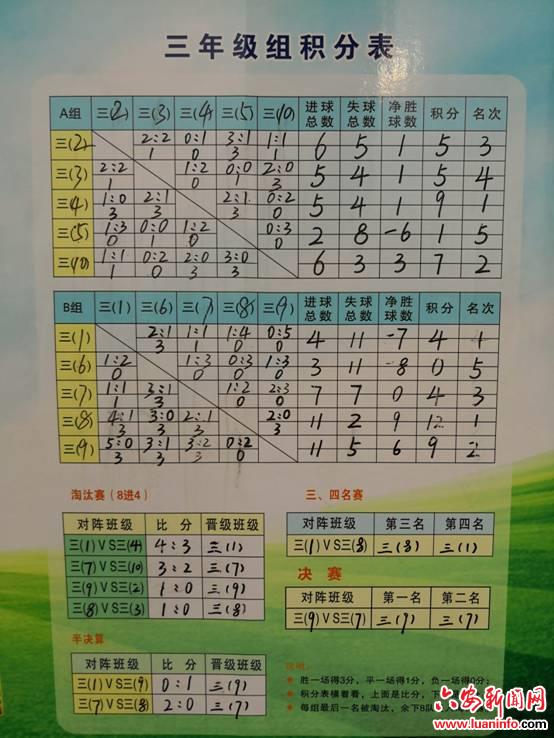 三年级组积分表
A组 三(2) 三(3) 三(4) 三(5) 三(10) 进球总数 失球总数 净胜球数 积分 名次
三(2) 2:2 0:1 3:1 1:1 6 5 1 5 3
1 0 3 1
三(3) 2:2 1:2 0:0 2:0 5 4 1 5 4
1 0 1 3
三(4) 1:0 2:1 2:1 0:2 5 4 1 9 1
3 3 3 0
三(5) 1:3 0:0 1:2 0:3 2 8 -6 1 5
0 1 0 0
三(10) 1:1 0:2 2:0 3:0 6 3 3 7 2
1 0 3 3
B组 三(1) 三(6) 三(7) 三(8) 三(9) 进球总数 失球总数 净胜球数 积分 名次
三(1) 2:1 1:1 1:4 0:5 4 11 -7 4
3 1 0 0
三(6) 1:2 1:3 0:3 1:3 3 11 -8 0 5
0 0 0 0
三(7) 1:1 3:1 1:2 2:3 7 7 0 4 3
1 3 0 0
三(8) 4:1 3:0 2:1 2:0 11 2 9 12 1
3 3 3 3
三(9) 5:0 3:1 3:2 0:2 11 5 6 9 2
3 3 3 0
淘汰赛（8进4）
对阵班级 比分 晋级班级
三(1)VS三(4) 4:3 三(1)
三(7)VS三(10) 3:2 三(7)
三(9)VS三(2) 1:0 三(9)
三(8)VS三(3) 1:0 三(8)
三、四名赛
对阵班级 第三名 第四名
三(1)VS三(8) 三(8) 三(1)
决赛
对阵班级 第一名 第二名
三(9)VS三(7) 三(9) 三(7)
半决算
对阵班级 比分 晋级班级
三(1)VS三(9) 0:1 三(9)
三(7)VS三(8) 2:0 三(7)
说明：
● 胜一场得3分，平一场得1分，负一场得0分；
● 积分表横着看，上面是比分，下
● 每组最后一名被淘汰，余下8队
六安新闻网
www.luaninfo.com